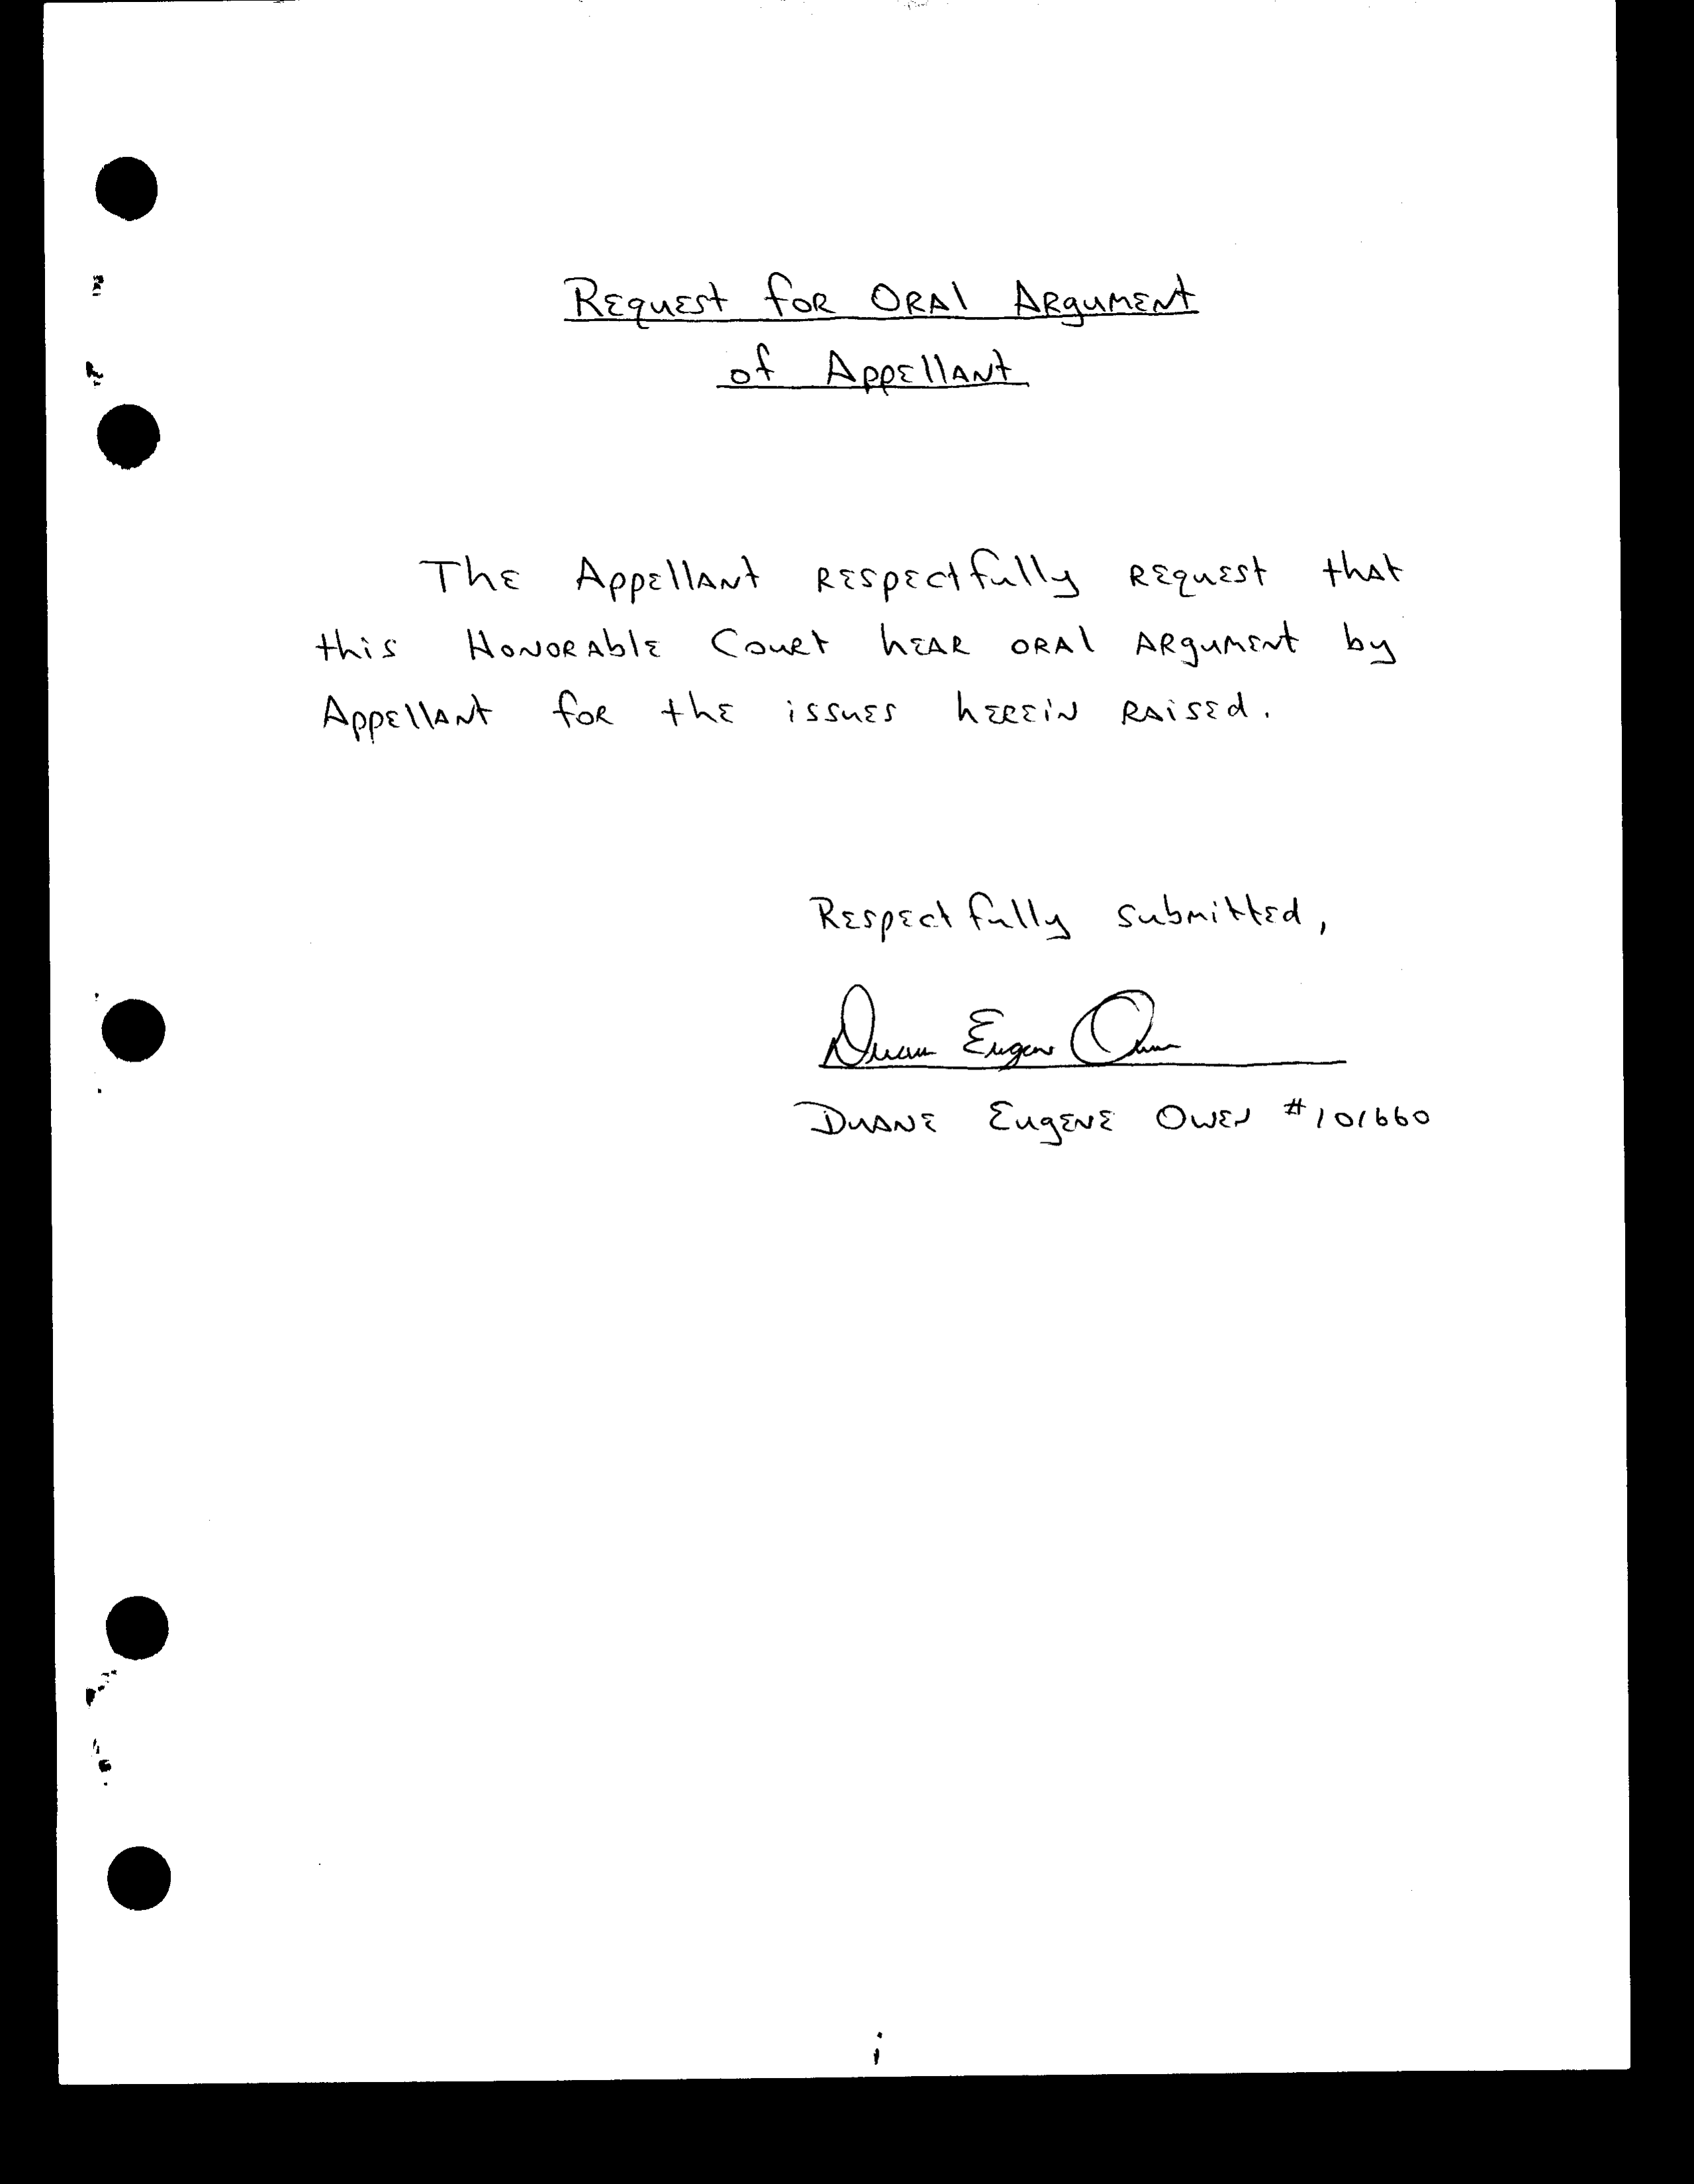 Request for Oral Argument
of Appellant
The Appellant respectfully request that
this Honorable Court hear oral argument by
Appellant for the issues herein raised.
Respectfully submitted,
Duane Eugene Owen
Duane Eugene Owen #101660
i